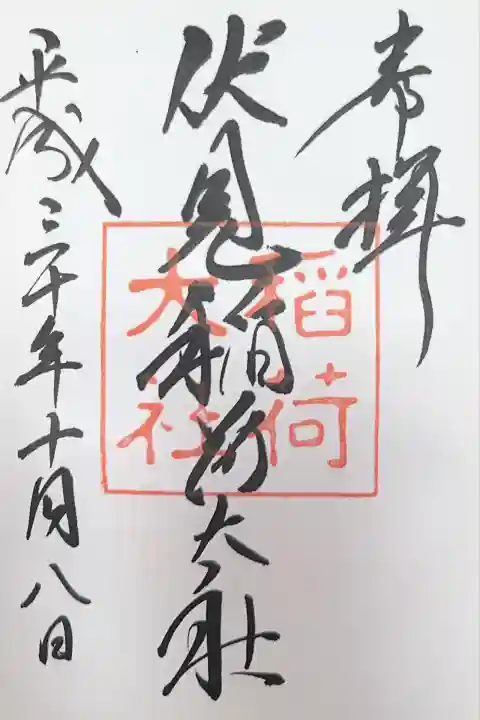 奉拝
伏見稲荷大社
平成三十年十月八日
稲荷
大社